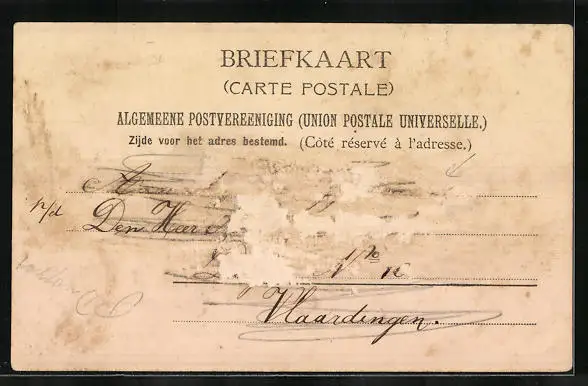 BRIEFKAART
(CARTE POSTALE)
ALGEMEENE POSTVEREENIGING (UNION POSTALE UNIVERSELLE.)
Zijde voor het adres bestemd. (Côté réservé à l'adresse.)
p/d Den Heer
No
Vlaardingen.